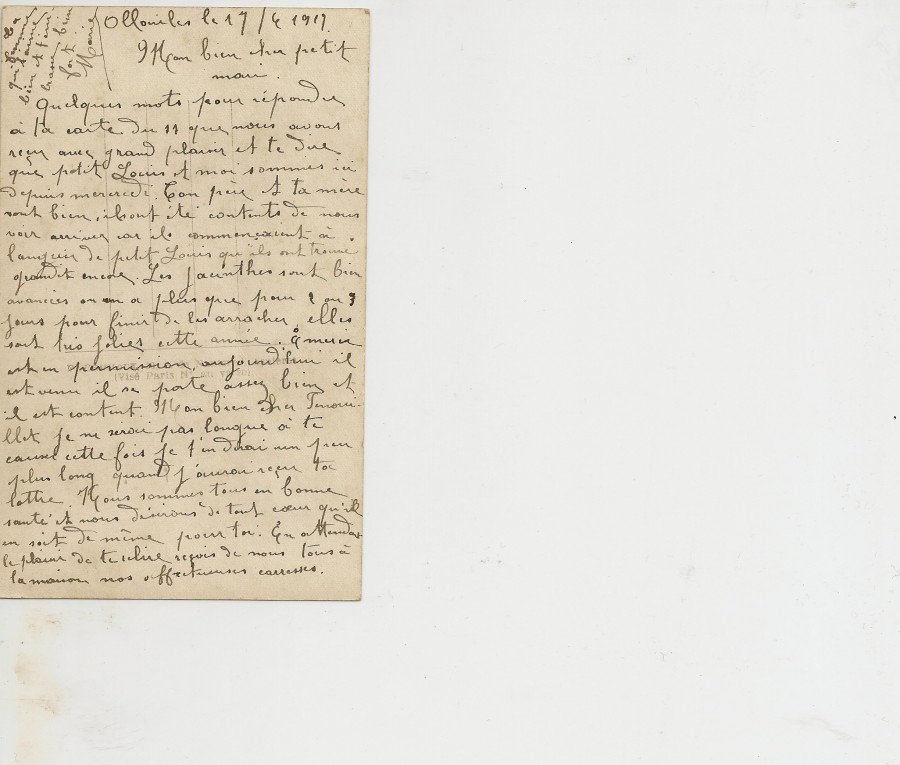 Ollioules le 17/4 1917
Mon bien cher petit
mari.
Quelques mots pour répondre
à ta carte du 11 que nous avons
reçu avec grand plaisir et te dire
que petit Louis et moi sommes ici
depuis mercredi. Ton père et ta mère
sont bien, ils ont été contents de nous
voir arriver car ils commençaient à
languir de petit Louis qu'ils ont trouvé
grandit encore. Les jacinthes sont bien
avancées on en a plus que pour 2 ou 3
jours pour finir de les arracher, elles
sont très jolies cette année.
est en permission, aujourd'hui il
est venu il se porte assez bien et
il est content. Mon bien cher
je ne serai pas longue à te
causer cette fois je t'en dirai un peu
plus long quand j'aurai reçu ta
lettre. Nous sommes tous en bonne
santé et nous désirons de tout cœur qu'il
en soit de même pour toi. En attendant
le plaisir de te relire reçois de nous tous à
la maison nos affectueuses caresses.
Ta
femme
qui t'aime
bien et t'em
brasse bien
fort.
Marie
(Visé Paris N° au verso)